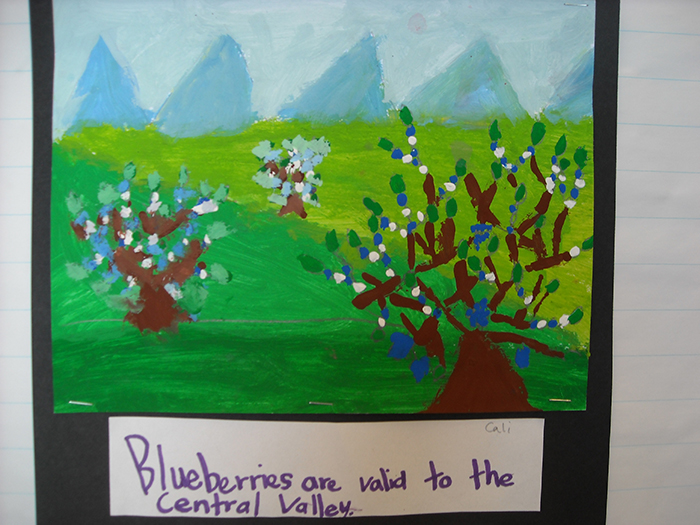 Cali
Blueberries are valid to the
Central Valley.